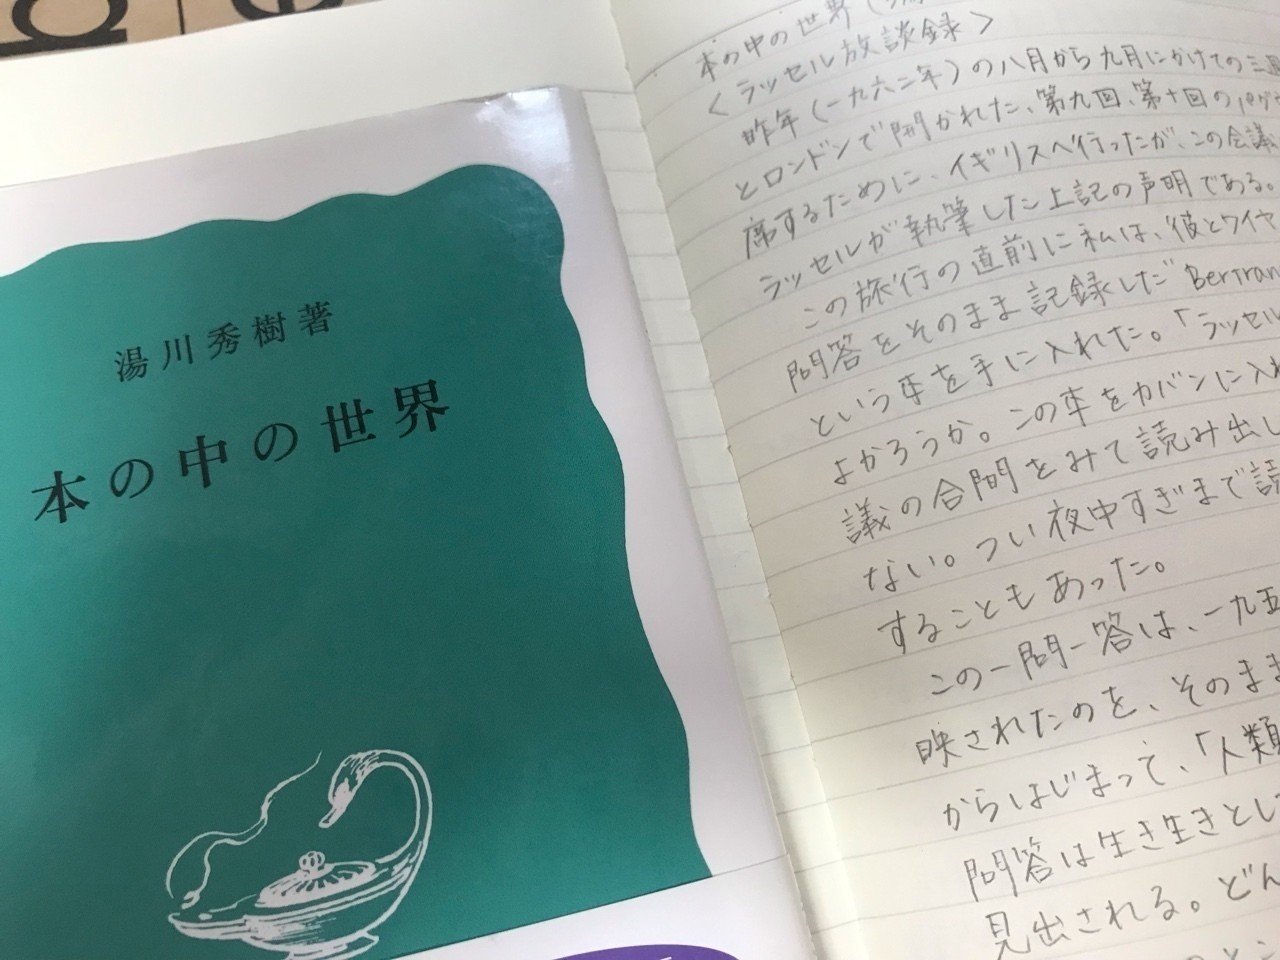 湯川秀樹著
本の中の世界
本の中の世界(湯
〈ラッセル放談録〉
昨年(一九六二年)の八月から九月にかけての三週
とロンドンで開かれた、第九回、第十回のパグ
席するために、イギリスへ行ったが、この会議
ラッセルが執筆した上記の声明である。
この旅行の直前に私は、彼とワイヤ
問答をそのまま記録した"Bertran
という本を手に入れた。「ラッセル
よかろうか。この本をカバンに入れ
議の合間をみて読み出し
ない。つい夜中すぎまで読
することもあった。
この一問一答は、一九五
映されたのを、そのまま
からはじまって、「人類
問答は生き生きとし
見出される。どん